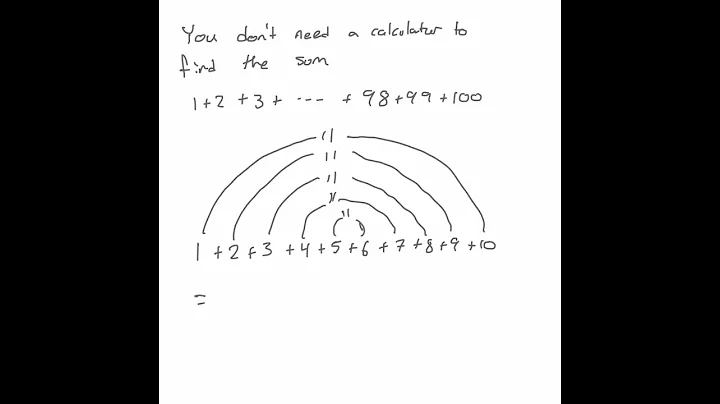 You don't need a calculator to
find the sum
1+2+3+ --- +98+99+100
11
11
11
11
11
1+2+3+4+5+6+7+8+9+10
=